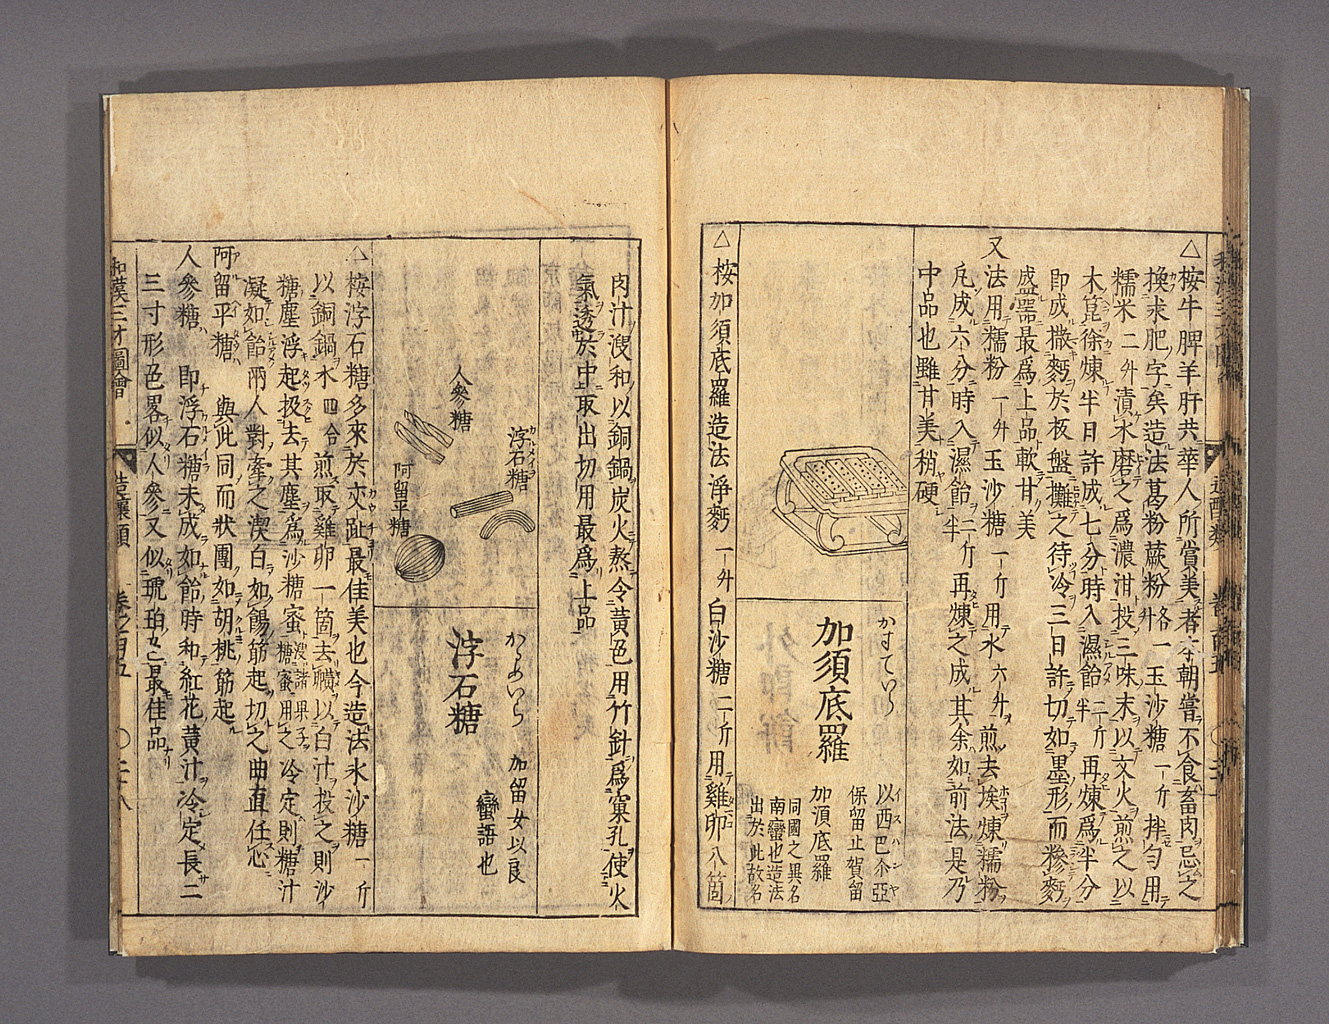 △按牛脾羊肝共華人所賞美者本朝嘗不食畜肉忌之
換求肥字矣造法葛粉蕨粉各一升玉沙糖一斤拌匀用
糯米二升漬水磨之爲濃泔投三味末以文火煎之以
木箆徐煉半日許成七分時入濕飴二斤半再煉爲半分
即成撒麪於板盤攤之待冷三日許切如墨形而糝麪
盛器最爲上品軟甘美
又法用糯粉一升玉沙糖一斤用水六升煎去埃煉糯粉
凡成六分時入濕飴二斤半再煉之成其余如前法是乃
中品也雖甘美稍硬
かすていら
加須底羅
以西巴尓亞
保留止賀留
加須底羅
同國之異名
南蠻也造法
出於此故名
△按加須底羅造法淨麪一升白沙糖二斤用雞卵八箇
肉汁溲和以銅鍋炭火熬令黄色用竹針爲窠孔使火
氣透於中取出切用最爲上品
浮石糖
人參糖
阿留平糖
かるめいら
浮石糖
加留女以良
蠻語也
△按浮石糖多來於交趾最佳美也今造法氷沙糖一斤
以銅鍋水四合煎取雞卵一箇去黄以白汁投之則沙
糖塵浮起扱去其塵爲沙糖蜜溲諸果子糖蜜用之冷定則糖汁
凝如飴兩人對牽之潔白如餳筋起切之曲直任心
阿留平糖 與此同而狀團如胡桃筋起
人參糖 即浮石糖未成如飴時和紅花黄汁冷定長二
三寸形色畧似人參又似琥珀最佳品
和漢三才圖會 造釀類 巻之百五 〇二十八